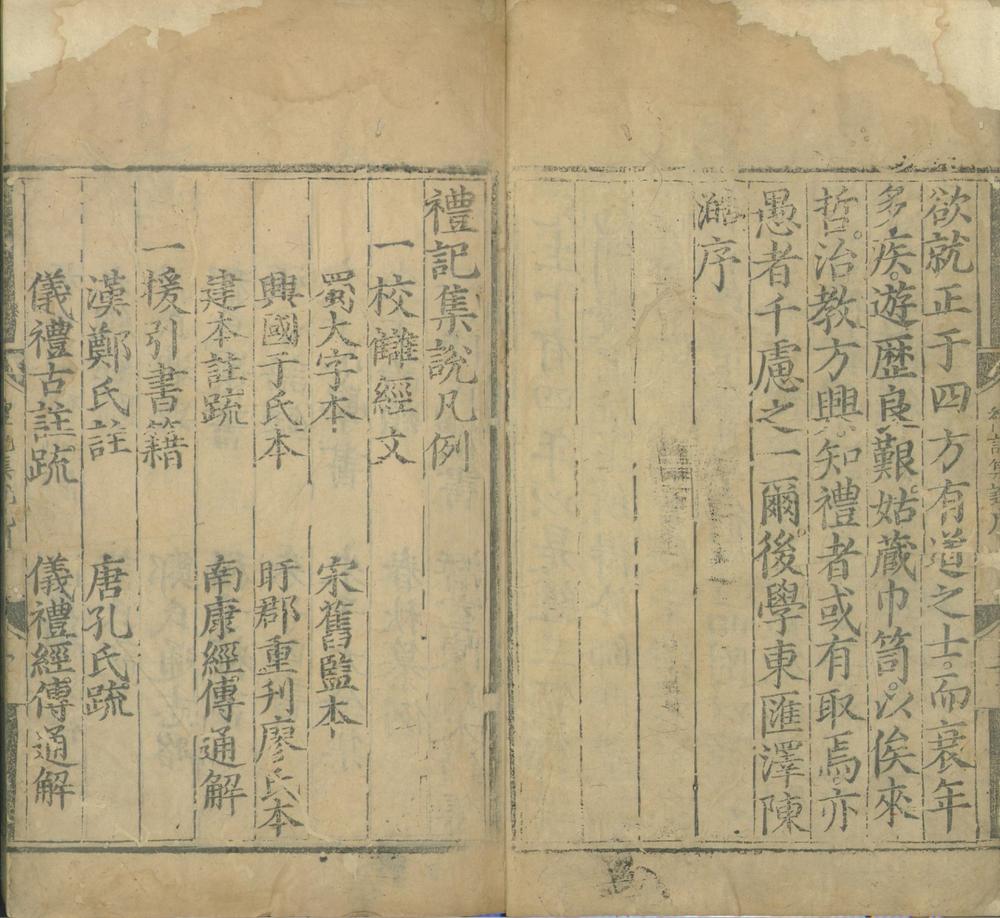 欲就正于四方有道之士。而衰年
多疾。遊歷良艱。姑藏巾笥。以俟來
哲。治教方興。知禮者或有取焉。亦
愚者千慮之一爾。後學東匯澤陳
澔序
禮記集說凡例
一校讎經文
蜀大字本 宋舊監本
興國于氏本 盱郡重刊廖氏本
建本註䟽 南康經傳通解
一援引書籍
漢鄭氏註 唐孔氏䟽
儀禮古註䟽 儀禮經傳通解